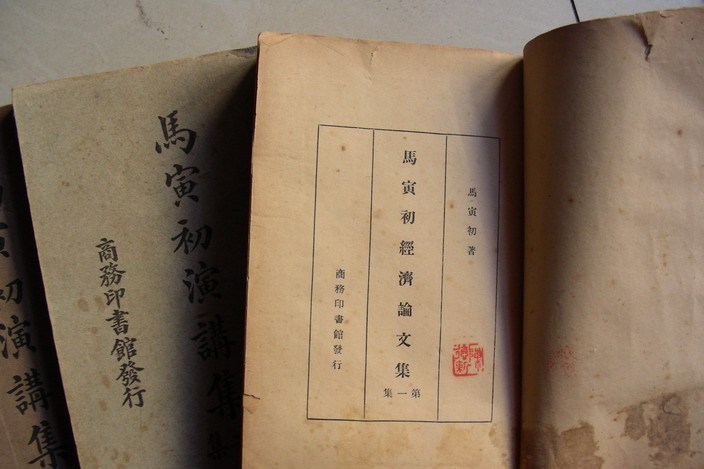 馬寅初著
馬寅初經濟論文集
第一集
商務印書館發行
馬寅初演講集
商務印書館發行
寅初演講集